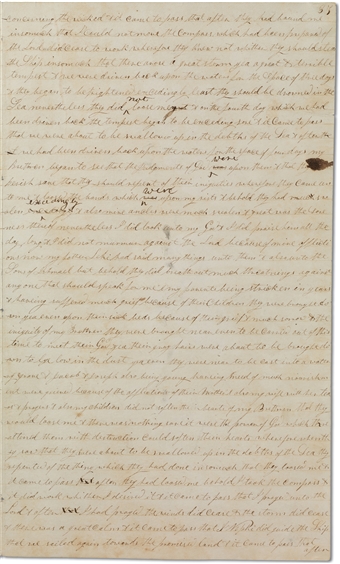 concerning the wicked & it came to pass that after they had bound me
insomuch that I could not move the Compass which had been prepared
of the Lord did cease to work wherefore they knew not whither they should steer
the Ship insomuch that there arose a great storm yea a great & terrible
tempest & we were driven back upon the waters for the space of three days
& they began to be frightened exceedingly lest they should be drowned in the
Sea nevertheless they did not loose me & on the fourth day which we had
been driven back the tempest began to be exceeding sore & it came to pass
that we were about to be swallowed up in the depths of the Sea & after
we had been driven back upon the waters for the space of four days my
Brethren began to see that the Judgments of God were upon them & that they must
perish save that they should repent of their iniquities wherefore they came unto
me & the bands which were upon my & behold they had much
swollen exceedingly & also mine ankles were much swollen & great was the soreness
thereof nevertheless I did look unto my God & I did praise him all the
day long & I did not murmur against the Lord because of mine afflictions
now my father Lehi had said many things unto them & also unto the
Sons of Ishmael but behold they did breathe out much threatenings against
any one that should speak for me & my parents being stricken in years
& having suffered much grief because of their Children they were brought down
yea even upon their sick beds because of their grief & much sorrow & the
iniquity of my Brethren they were brought near even to be carried out of this
time to meet their God yea their grey hairs were about to be brought down
to lie low in the dust yea even they were near to be cast into a watery
grave & Jacob & Joseph also being young having need of much nourishment
were grieved because of the afflictions of their Mother & also my wife with her tears
& prayers & also my children did not soften the hearts of my Brethren that they
would loose me & there was nothing save it were the power of God which
threatened them with destruction could soften their hearts wherefore when they
saw that they were about to be swallowed up in the depths of the Sea they
repented of the thing which they had done insomuch that they loosed me &
it came to pass after they had loosed me behold I took the Compass &
it did work whither I desired it & it came to pass that I prayed unto the
Lord & after I had prayed the winds did cease & the storm did cease
& there was a great Calm & it came to pass that I Nephi did guide the Ship
that we sailed again towards the promised land & it came to pass that
after